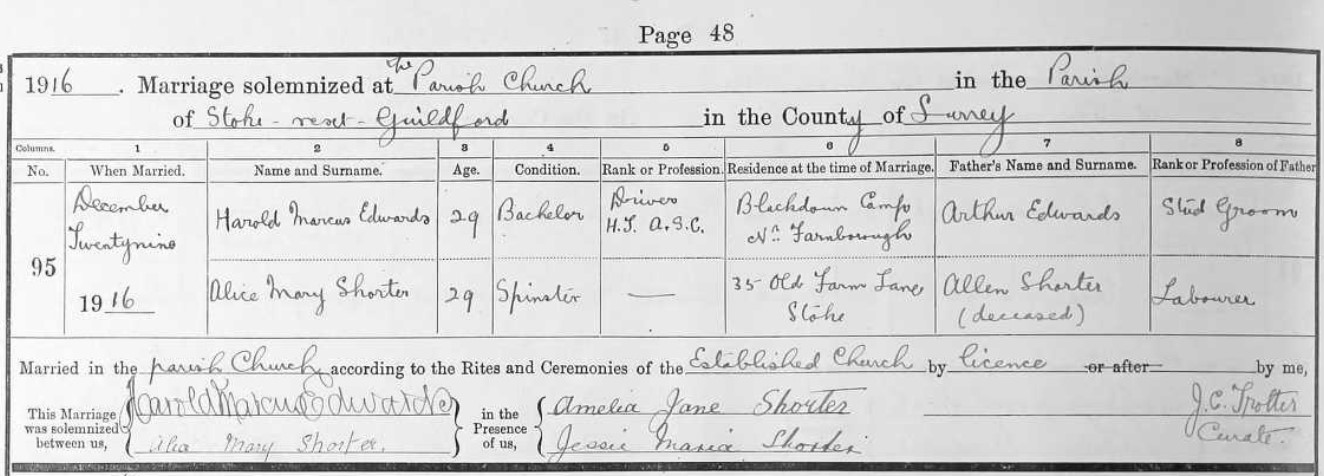 Page 48
1916. Marriage solemnized at the Parish Church in the Parish
of Stoke-next-Guildford in the County of Surrey
Columns. 1 2 3 4 5 6 7 8
No. When Married. Name and Surname. Age. Condition. Rank or Profession. Residence at the time of Marriage. Father's Name and Surname. Rank or Profession of Father
95 December Twentynine 1916 Harold Marcus Edwards 29 Bachelor Driver H.T. A.S.C. Blackdown Camp Nr. Farnborough Arthur Edwards Stud Groom
Alice Mary Shorter 29 Spinster — 35 Old Farm Lane Stoke Allen Shorter (deceased) Labourer
Married in the parish Church according to the Rites and Ceremonies of the Established Church by licence or after by me,
This Marriage was solemnized between us, Harold Marcus Edwards in the Presence of us, Amelia Jane Shorter J.C. Trotter
Alice Mary Shorter. Jessie Maria Shorter Curate.